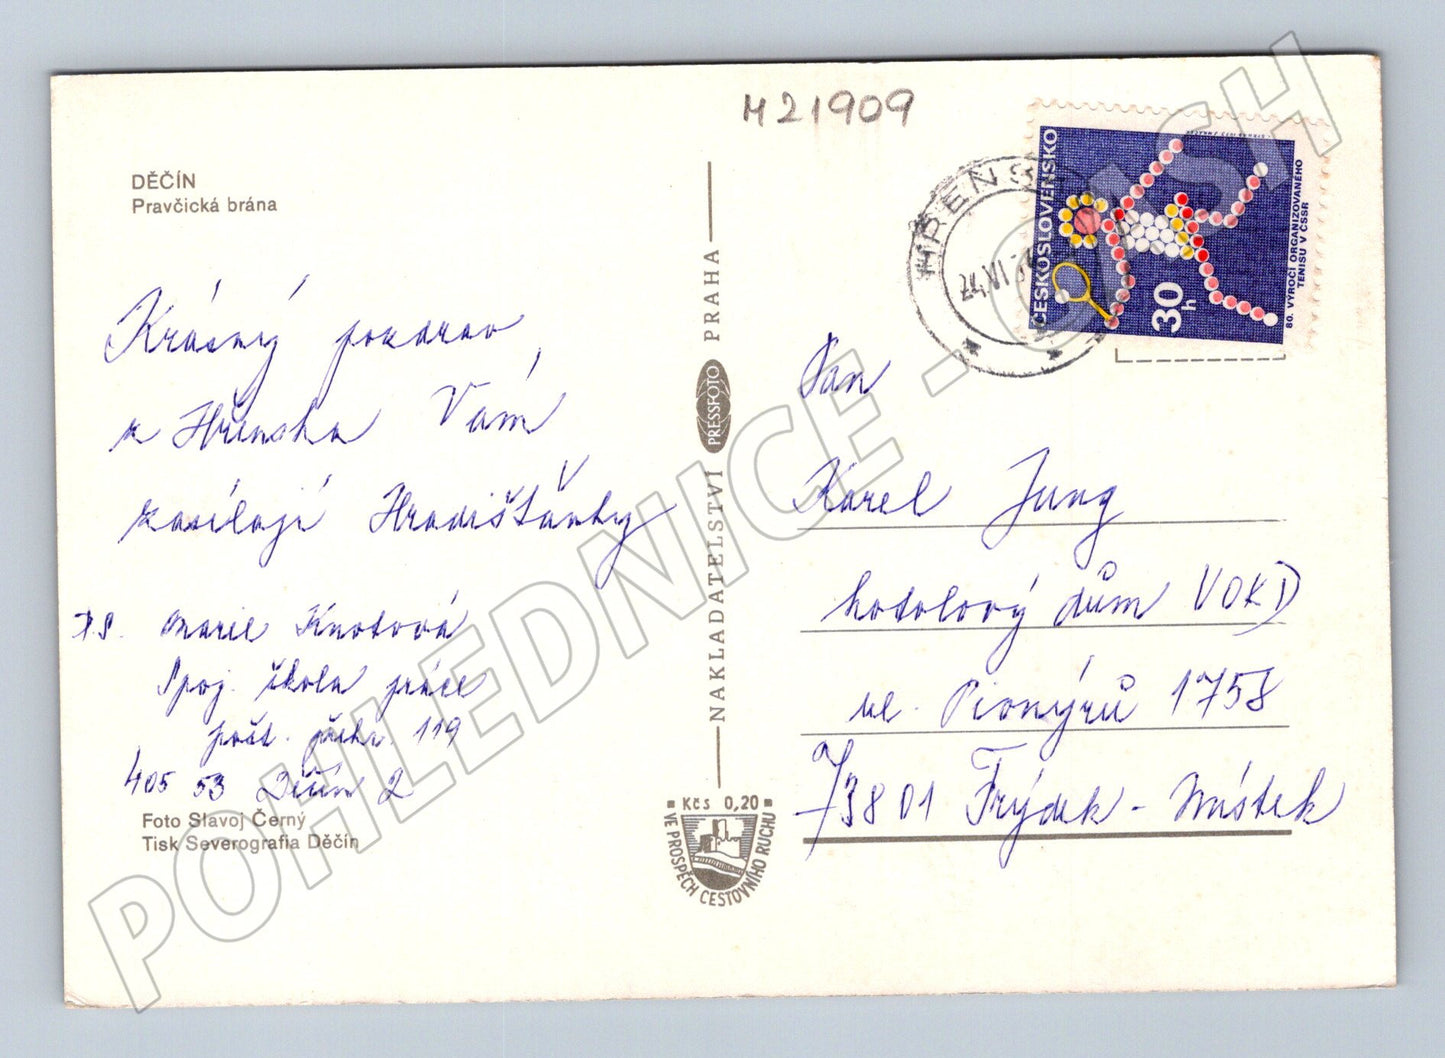 M21909
DĚČÍN
Pravčická brána
Krásný pozdrav
z Hřenska Vám
zasílají Hradišťánky
P.S. Marie Knotová
Spoj. škola práce
pošt. přihr. 119
405 53 Děčín 2
Foto Slavoj Černý
Tisk Severografia Děčín
NAKLADATELSTVÍ PRESSFOTO PRAHA
Kčs 0,20
VE PROSPĚCH CESTOVNÍHO RUCHU
HŘENSKO
24.VI.
ČESKOSLOVENSKO
30h
80. VÝROČÍ ORGANIZOVANÉHO
TENISU V ČSSR
Pan
Karel Jung
hotelový dům VOKD
ul. Pionýrů 1758
73801 Frýdek - Místek
POHLEDNICE - CASH